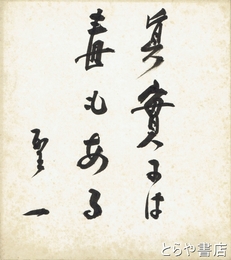 真實には
毒もある
聖一
とらや書店